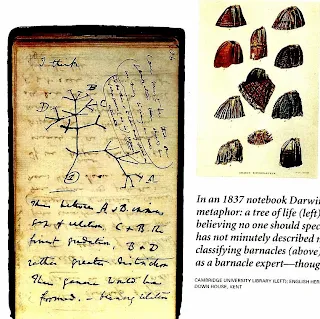 I think
A
B
C
D
Then between A & B. immens
gap of relation. C & B. the
finest gradation, B & D
rather greater distinction
Then genera would be
formed. — bearing relation
In an 1837 notebook Darwi
metaphor: a tree of life (left)
believing no one should spec
has not minutely described m
classifying barnacles (above)
as a barnacle expert—thoug
CAMBRIDGE UNIVERSITY LIBRARY (LEFT); ENGLISH HER
DOWN HOUSE, KENT